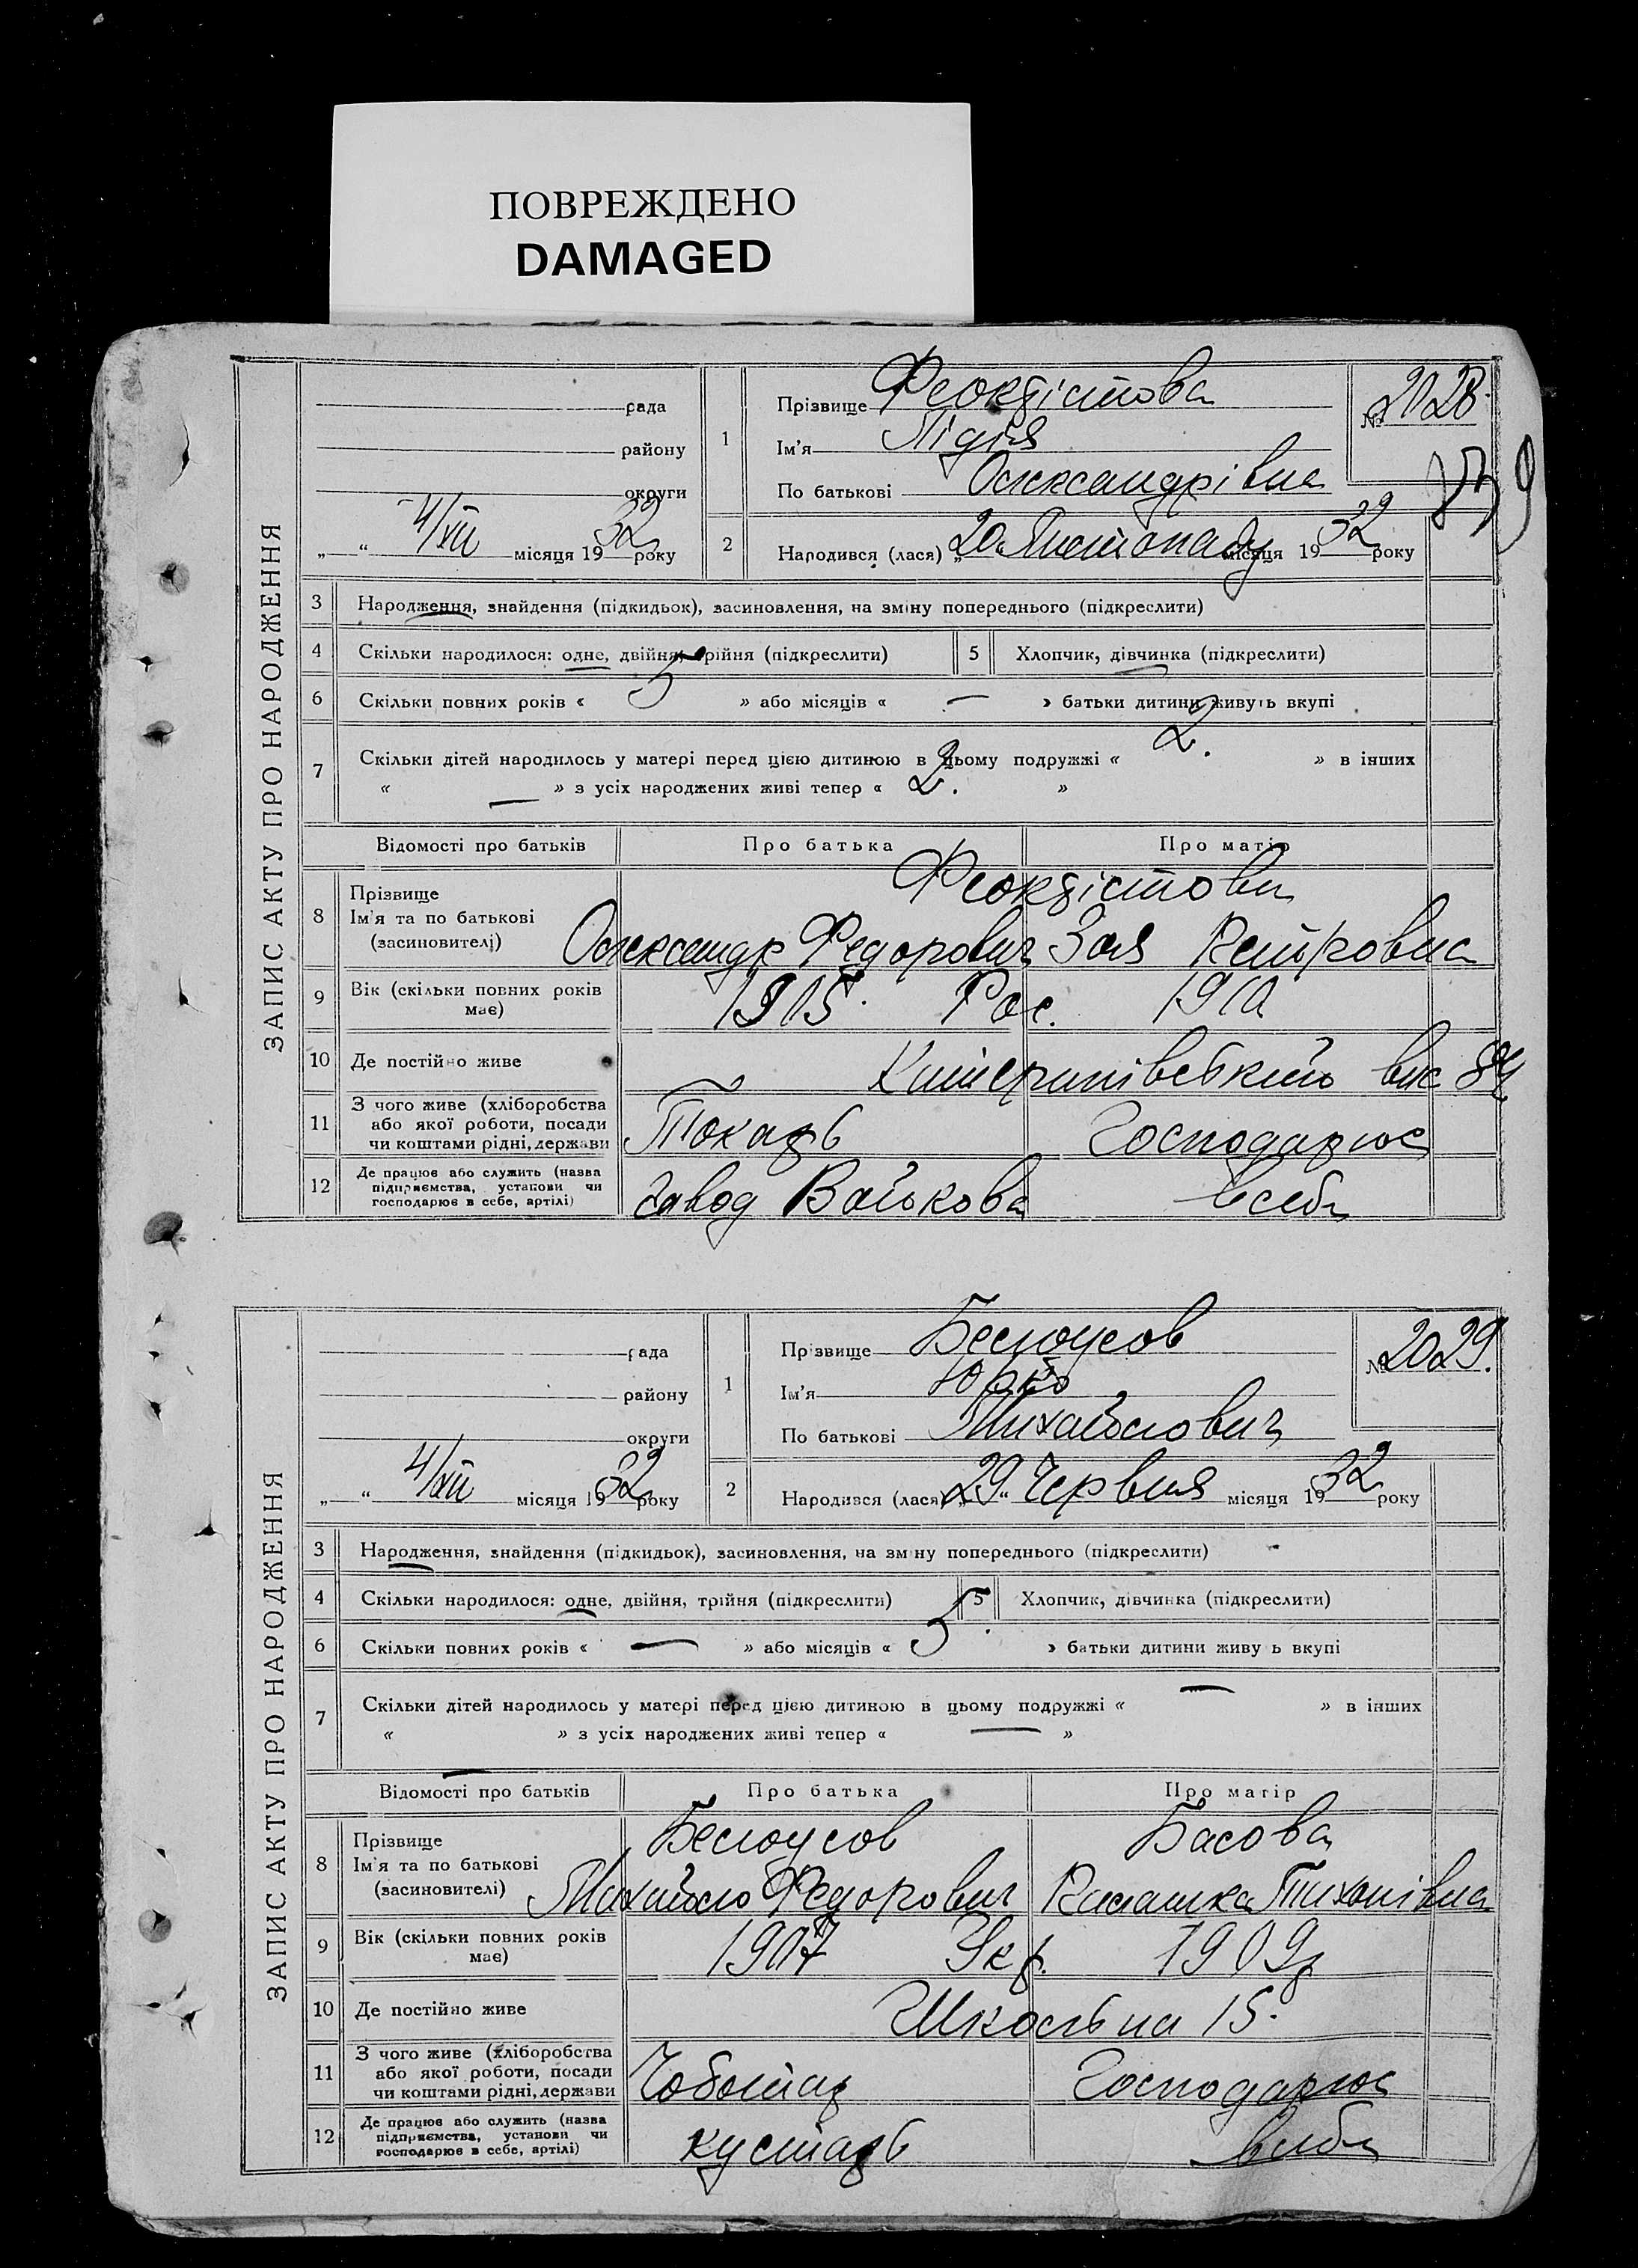 ПОВРЕЖДЕНО
DAMAGED
ЗАПИС АКТУ ПРО НАРОДЖЕННЯ
рада
району
округи
„ “ 4/XII місяця 1932 року
1
Прізвище Феоктістова
Ім'я Лідія
По батькові Олександрівна
№ 2028.
2
Народився (лася) „20“ Листопаду місяця 1932 року
3 Народження, знайдення (підкидьок), засиновлення, на зміну попереднього (підкреслити)
4 Скільки народилося: одне, двійня, трійня (підкреслити) 5 Хлопчик, дівчинка (підкреслити)
6 Скільки повних років « 5 » або місяців « — » батьки дитини живуть вкупі
7 Скільки дітей народилось у матері перед цією дитиною в цьому подружжі « 2. » в інших
« — » з усіх народжених живі тепер « 2. »
Відомості про батьків Про батька Про матір
8 Прізвище Феоктістови
Ім'я та по батькові
(засиновителі) Олександр Федорович Зоя Петровна
9 Вік (скільки повних років має) 1905. Рос. 1910
10 Де постійно живе вис 84
11 З чого живе (хліборобства
або якої роботи, посади
чи коштами рідні, держави Токарь Господарює
12 Де працює або служить (назва
підприємства, установи чи
господарює в себе, артілі) завод Войкова в себе
ЗАПИС АКТУ ПРО НАРОДЖЕННЯ
рада
району
округи
„ “ 4/XII місяця 1932 року
1
Прізвище Белоусов
Ім'я Юрко
По батькові Михайлович
№ 2029.
2
Народився (лася) „29“ Червня місяця 1932 року
3 Народження, знайдення (підкидьок), засиновлення, на зміну попереднього (підкреслити)
4 Скільки народилося: одне, двійня, трійня (підкреслити) 5 Хлопчик, дівчинка (підкреслити)
6 Скільки повних років « — » або місяців « 5. » батьки дитини живуть вкупі
7 Скільки дітей народилось у матері перед цією дитиною в цьому подружжі « — » в інших
« » з усіх народжених живі тепер « — »
Відомості про батьків Про батька Про матір
8 Прізвище Белоусов Басова
Ім'я та по батькові
(засиновителі) Михайло Федорович Тихонівна
9 Вік (скільки повних років має) 1907 Укр. 1909р
10 Де постійно живе Школьна 15.
11 З чого живе (хліборобства
або якої роботи, посади
чи коштами рідні, держави Чоботар Господарює
12 Де працює або служить (назва
підприємства, установи чи
господарює в себе, артілі) кустарь в себе